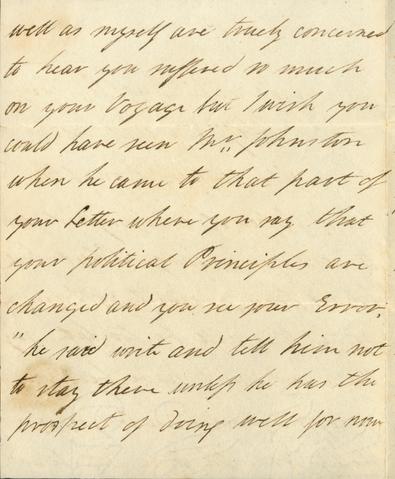 well as myself are truely concerned
to hear you suffered so much
on your Voyage but I wish you
could have seen Mr. Johnston
when he came to that part of
your Letter where you say that
your political Principles are
changed and you see your Error,
"he said write and tell him not
to stay there unless he has the
prospect of doing well for now